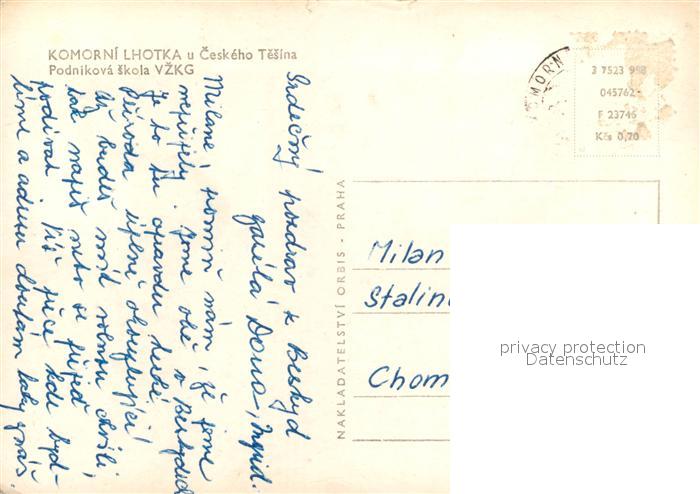 KOMORNÍ LHOTKA u Českého Těšína
Podniková škola VŽKG
Srdečný pozdrav z Beskyd
zasílá Dana, Ingrid.
Milane, promiň nám, že jsme
nepřijely. Jsme obě v Beskydech
Je to tu opravdu hezké.
Příroda úplně okouzlující!
Až budeš mít volnou chvíli,
tak napiš nebo se přijeď
podívat. Víš přece kde byd-
líme a adresu doufám taky znáš.
NAKLADATELSTVÍ ORBIS - PRAHA
MORN
3 7523 998
045762
F 23746
Kčs 0,70
Milan
Stalin
Chom
privacy protection
Datenschutz